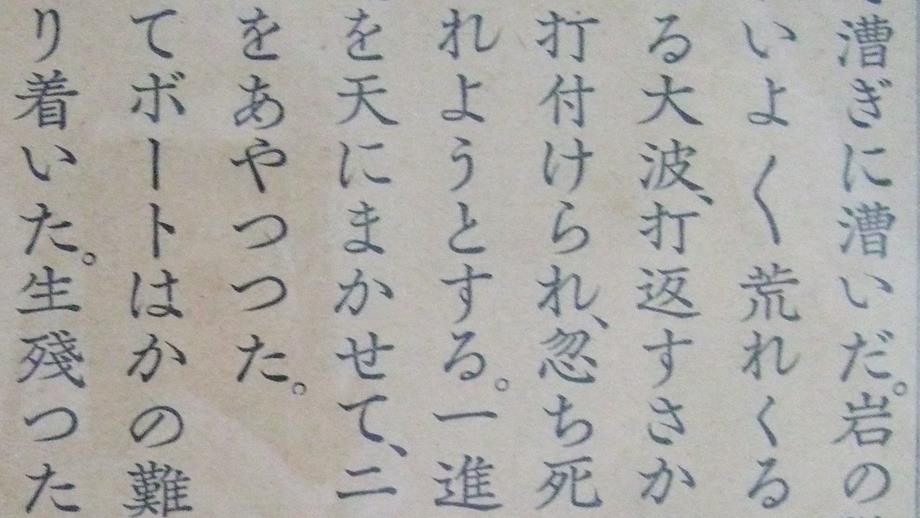 漕ぎに漕いだ。岩の
いよ〱荒れくる
る大波、打返すさか
打付けられ、忽ち死
れようとする。一進
を天にまかせて、二
をあやつつた。
てボートはかの難
り着いた。生殘つた